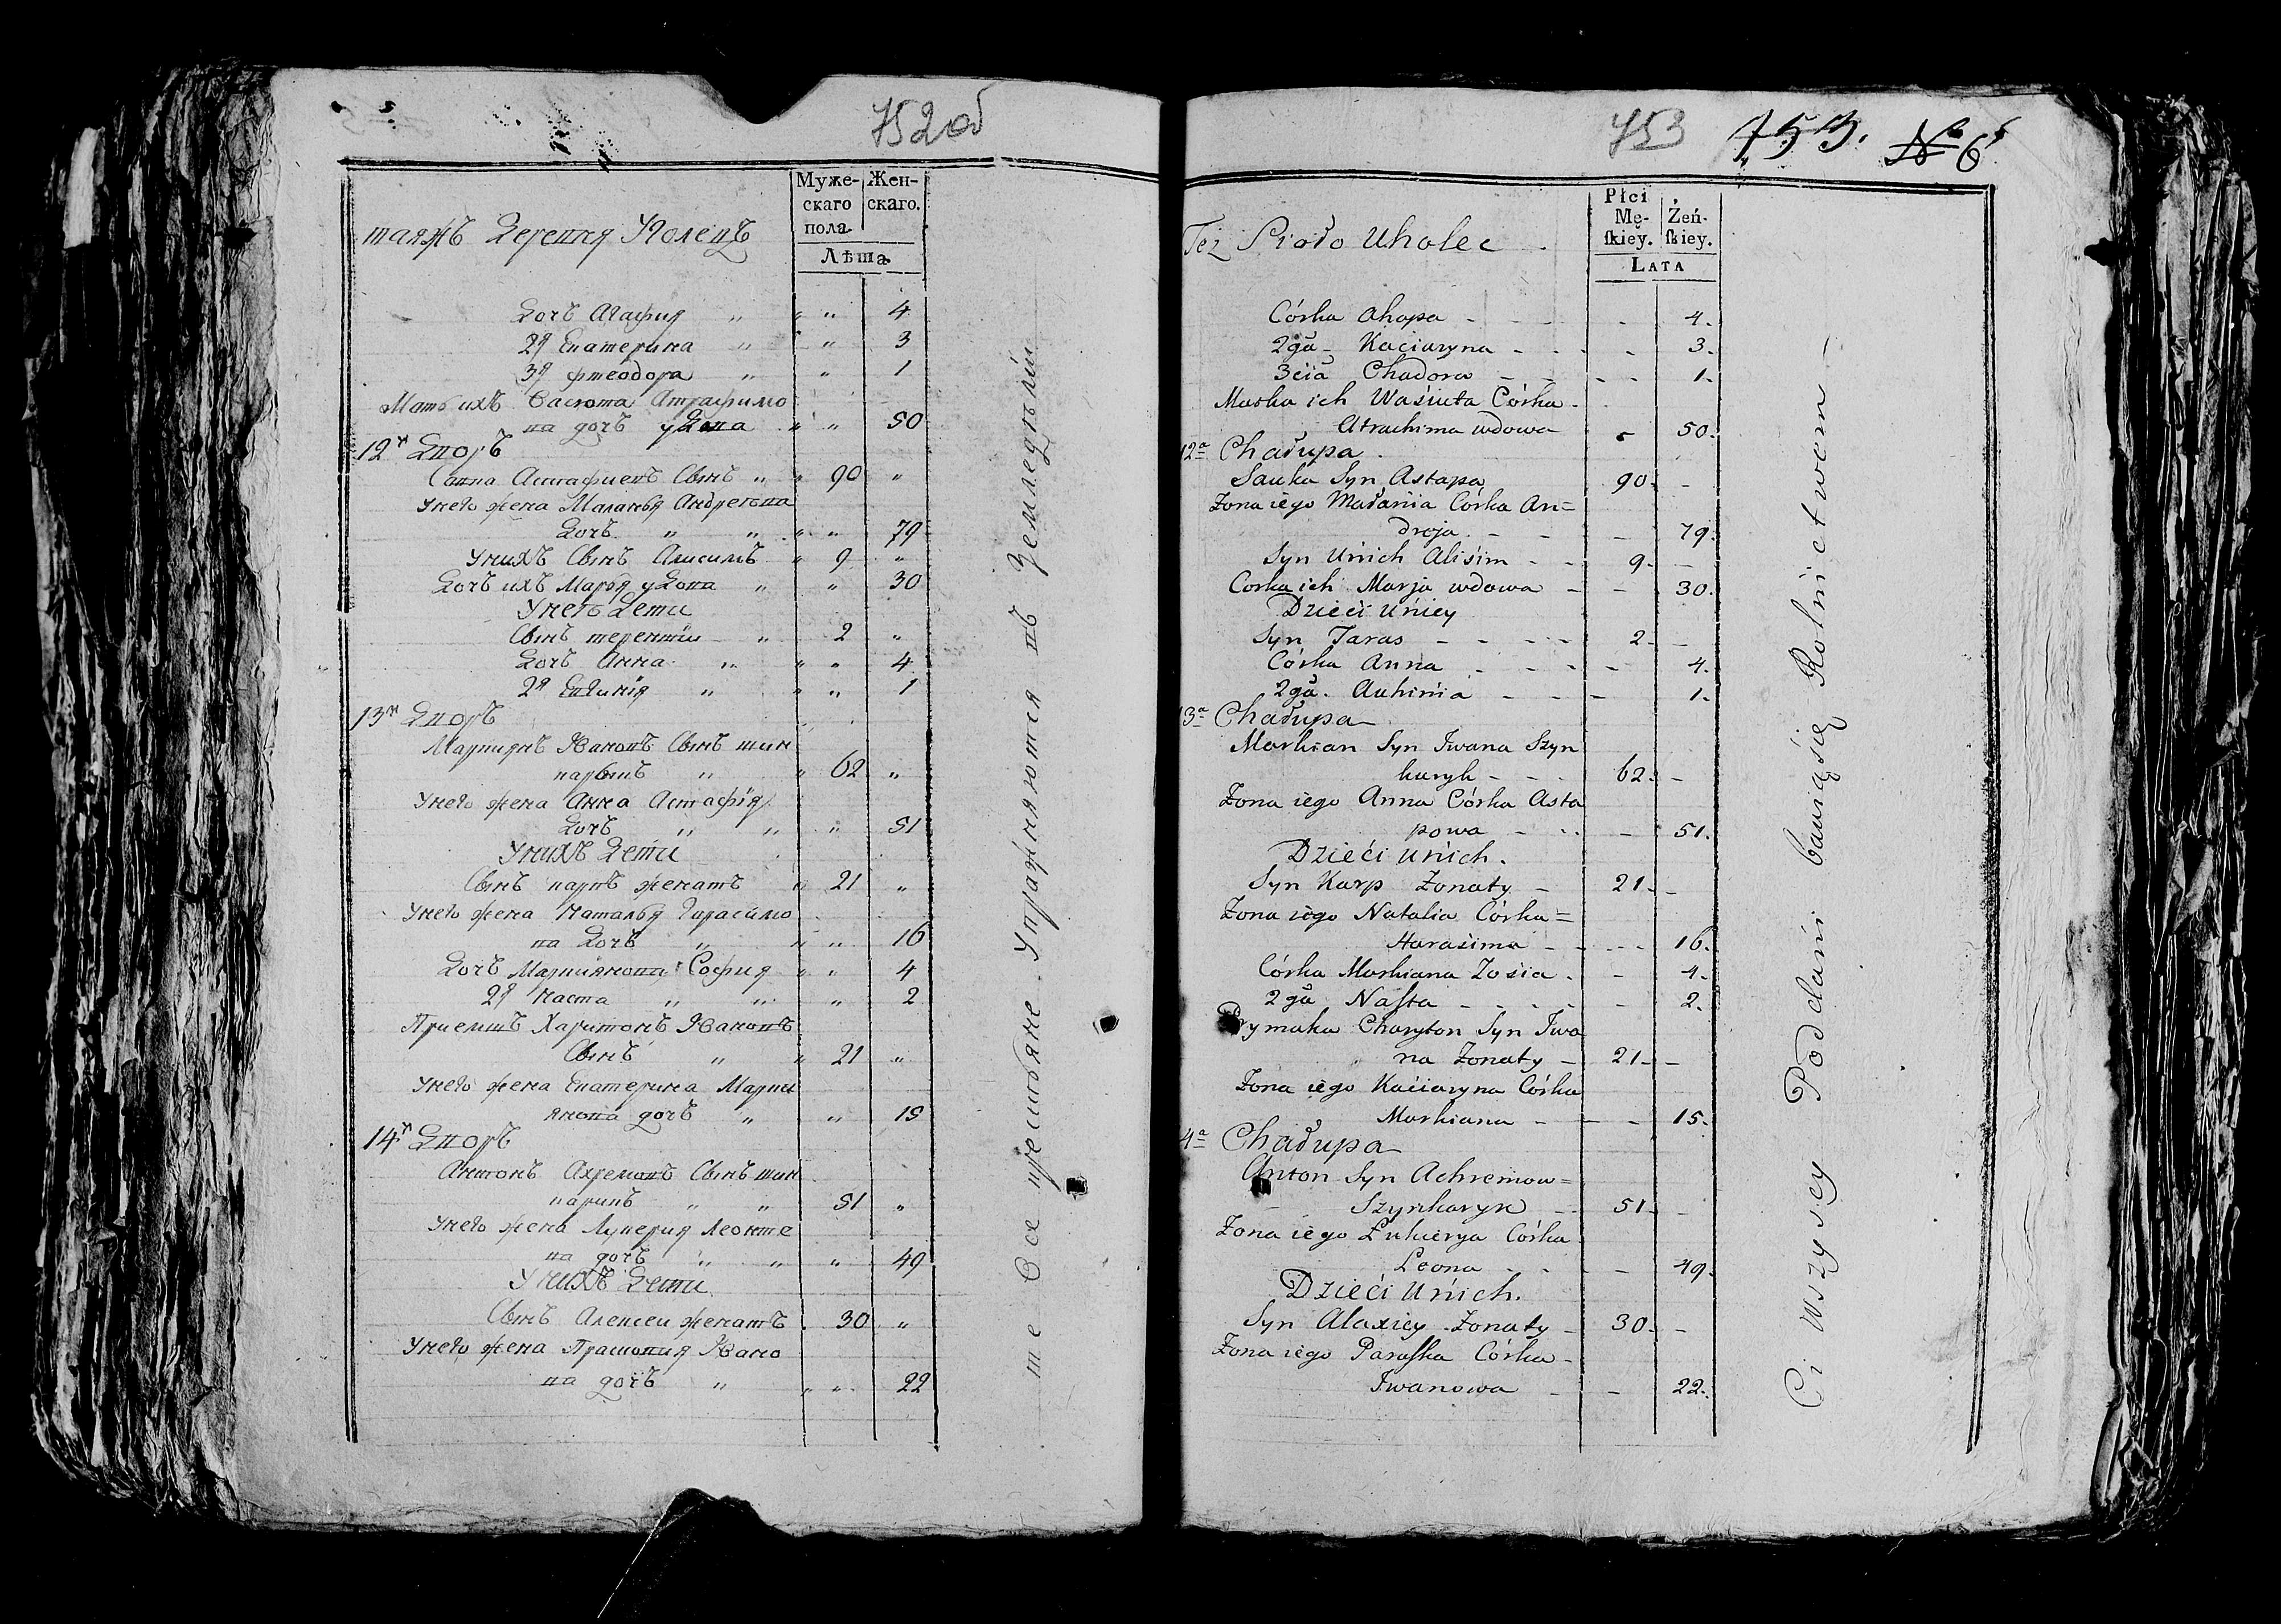 752 об
Муже-
скаго
пола
Жен-
скаго.
Лѣта
таяжъ Деревня Уволецъ
Дочь Агафия " " " 4
2я Екатерина " " 3
3я Фтеодора " " 1
Мать ихъ Васюта Атрафимо
ва дочь удова " " 50
12й Дворъ
Савка Астафиевъ Сынъ " " 90 "
унего жена Маланья Андреева
Дочь " " " " 79
Унихъ Сынъ Алисимъ " 9 "
Дочь ихъ Марья удова " " 30
Унего Дети
Сынъ терентий " 2 "
Дочь Анна " " " 4
2я Евгиния " " " 1
13й Дворъ
Маркиянъ Ивановъ Сынъ шин
карыкъ " " 62 "
Унего жена Анна Астафия
Дочь " " " 51
Унихъ Дети
Сынъ карпъ женатъ " 21 "
Унего жена Наталья Гарасимо
ва Дочь " " " 16
Дочь Маркиянова София " " 4
2я Наста " " " 2
Приемшъ Харитонъ Ивановъ
Сынъ " " 21 "
Унего жена Екатерина Марки
янова дочь " " 15
14й Дворъ
Антонъ Ахремовъ Сынъ шин
карикъ " " 51 "
Унего жена Лукерия Леонте
ва дочь " " " 49
Унихъ Дети
Сынъ Алексеи женатъ 30 "
Унего жена Прасковия Ивано
ва дочь " " " 22
те Все крестьяне Упражняются въ Земледелии
753 753. № 6
Płci
Mę-
skiey.
Żeń-
skiey.
Lata
Też Sioło Uholec
Córka Ahapa - - - 4.
2ga Kaciaryna - - - 3.
3cia Chadora - - - 1.
Matka ich Waśiuta Córka
Atrachima wdowa - 50.
12a Chałupa
Sauka Syn Astapa 90. -
Żona iego Małania Córka An=
dreja - - - 79.
Syn Unich Aliśim - - 9. -
Corka ich Marja wdowa - - 30.
Dzieci Uniey
Syn Taras - - - 2. -
Córka Anna - - - 4.
2ga Auhinia - - - 1.
13a Chałupa
Markian Syn Iwana Szyn
karyk - - 62. -
Żona iego Anna Córka Asta
powa - - - 51.
Dzieći Unich.
Syn Karp Żonaty - 21. -
Żona iego Natalia Córka=
Harasima - - - 16.
Córka Markiana Zosia - - 4.
2ga Nasta - - - 2.
Prymaka Charyton Syn Iwa
na Żonaty - 21. -
Żona iego Kaciaryna Córka
Markiana - - - 15.
4a Chałupa
Anton Syn Achremow=
Szynkaryk - 51. -
Żona iego Łukierya Córka
Leona - - - 49.
Dzieći Unich.
Syn Alaxiey Żonaty - 30. -
Żona iego Paraska Córka
Iwanowa - - 22.
Ci Wszyscy Poddani bawią śię Rolnictwem -